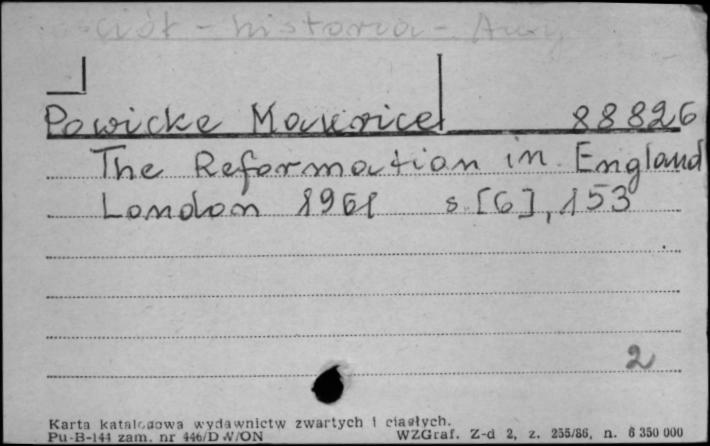 ciół - historia - Ang
Powicke Maurice 88826
The Reformation in England
London 1961 s. [6], 153
2
Karta katalogowa wydawnictw zwartych i ciągłych.
Pu-B-144 zam. nr 446/DW/ON WZGraf. Z-d 2, z. 255/86, n. 6 350 000